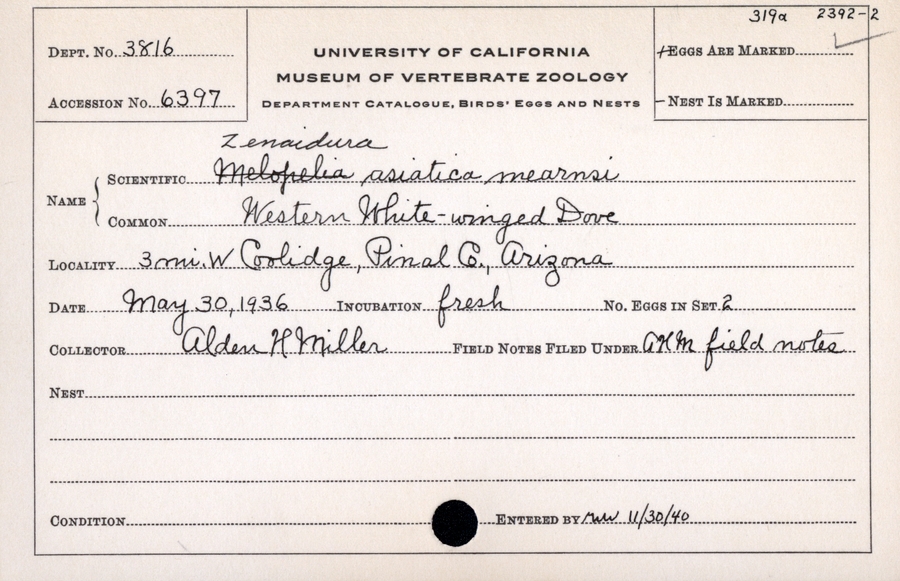 319a 2392-2
Dept. No. 3816
Accession No. 6397
UNIVERSITY OF CALIFORNIA
MUSEUM OF VERTEBRATE ZOOLOGY
Department Catalogue, Birds' Eggs and Nests
+Eggs Are Marked
-Nest Is Marked
Zenaidura
Name
Scientific Melopelia asiatica mearnsi
Common Western White-winged Dove
Locality 3 mi. W Coolidge, Pinal Co., Arizona
Date May 30, 1936 Incubation fresh No. Eggs in Set 2
Collector Alden H Miller Field Notes Filed Under AHM field notes
Nest
Condition Entered by 11/30/40